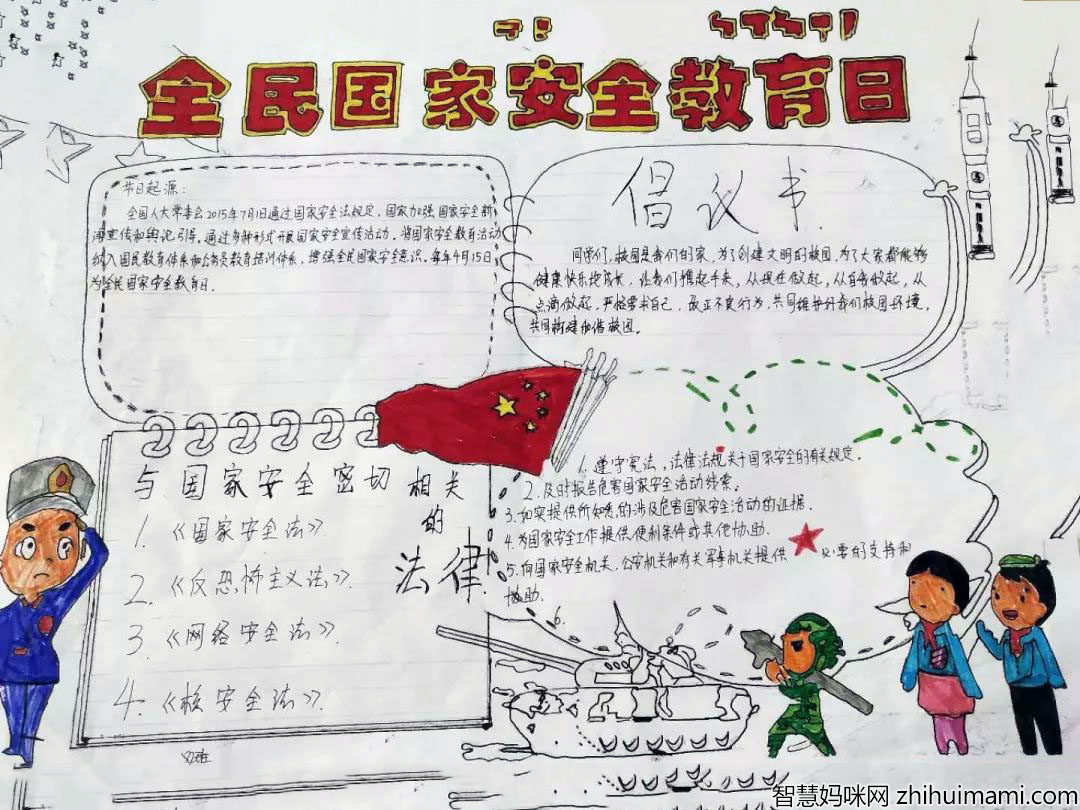 全民国家安全教育日
节日起源:
全国人大常委会2015年7月1日通过国家安全法规定,国家加强国家安全新
闻宣传和舆论引导,通过多种形式开展国家安全宣传活动。将国家安全教育活动
纳入国民教育体系和公务员教育培训体系,增强全民国家安全意识。每年4月15日
为全民国家安全教育日。
倡议书
同学们,校园是我们的家,为了创建文明的校园,为了大家都能够
健康快乐地成长,让我们携起手来,从现在做起,从自我做起,从
点滴做起,严格要求自己,改正不良行为,共同维护好我们校园环境,
共同构建和谐校园。
与国家安全密切相关
的
法律
1.《国家安全法》.
2.《反恐怖主义法》.
3.《网络安全法》.
4.《核安全法》.
1.遵守宪法,法律法规关于国家安全的有关规定.
2.及时报告危害国家安全活动线索.
3.如实提供所知悉的涉及危害国家安全活动的证据.
4.为国家安全工作提供便利条件或其他协助.
5.向国家安全机关,公安机关和有关军事机关提供必要的支持和
协助.
6.
智慧妈咪网 zhihuimami.com